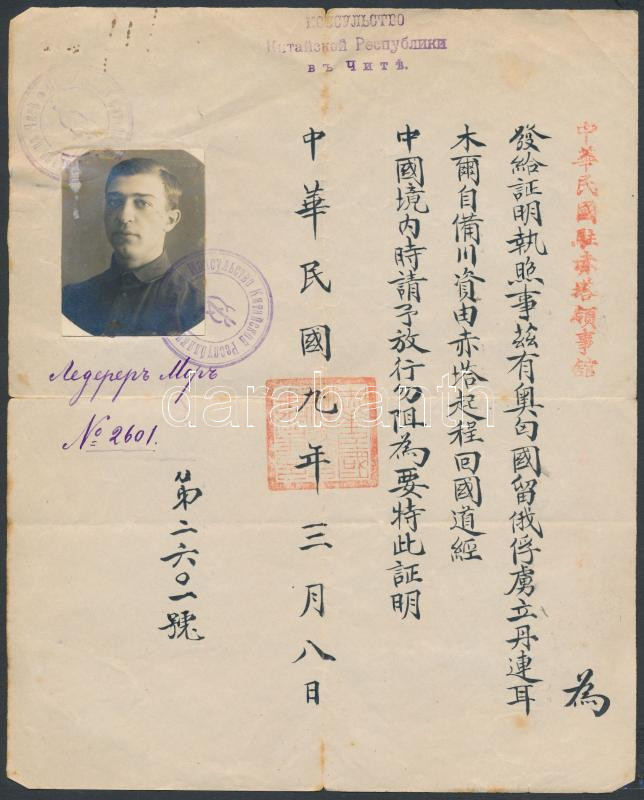 Консульство
Китайской Республики
въ Читѣ.
中華民國駐赤塔領事館
為
發給証明執照事茲有奧匈國留俄俘虜立丹連耳
木爾自備川資由赤塔起程回國道經
中國境內時請予放行勿阻為要特此証明
中華民國九年三月八日
第二六〇一號
Ледереръ Моръ
№ 2601.
Консульство Китайской Республики
darabanth